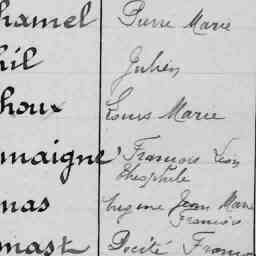 hamel Pierre Marie
hil Julien
houx Louis Marie
maigne François Léon
Théophile
mas Eugène Jean Marie
François
mast Docité